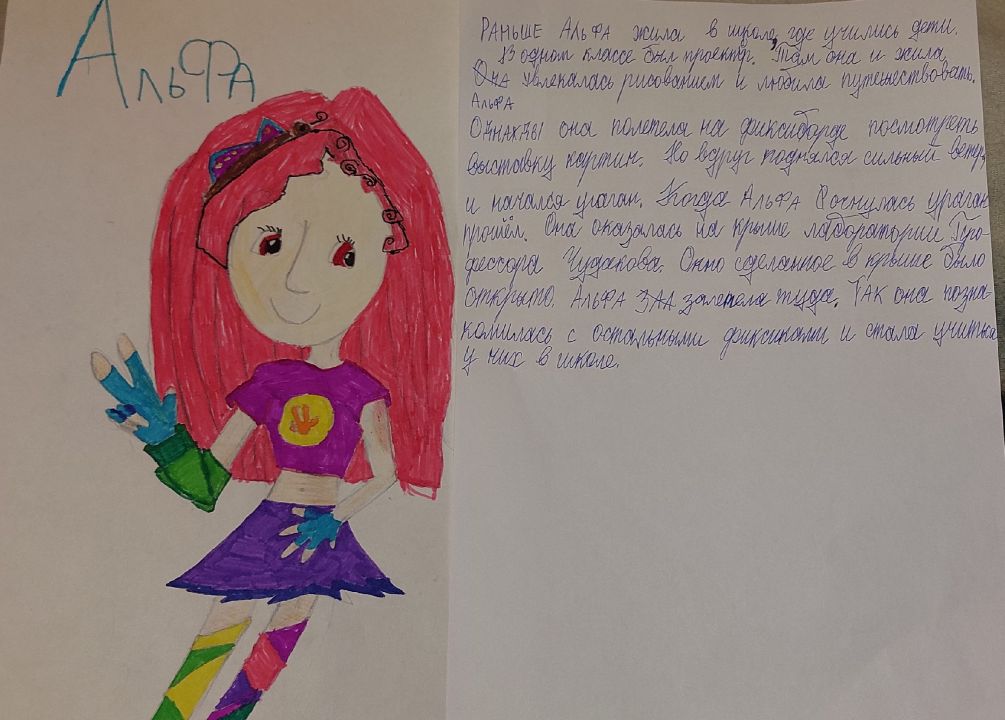 Альфа
РАНЬШЕ АЛЬФА жила в школе, где учились дети.
В одном классе был проектр. Там она и жила.
ОНА увлекалась рисованием и любила путешествовать.
АЛЬФА
ОДНАЖДЫ она полетела на фиксиборде посмотреть
выставку картин. Но вдруг поднялся сильный ветер
и начался ураган. Когда АЛЬФА очнулась ураган
прошёл. Она оказалась на крыше лаборатории Про-
фессора Чудакова. Окно сделанное в крыше было
открыто. АЛЬФА залетела туда. ТАК она позна-
комилась с остальными фиксиками и стала учиться
у них в школе.